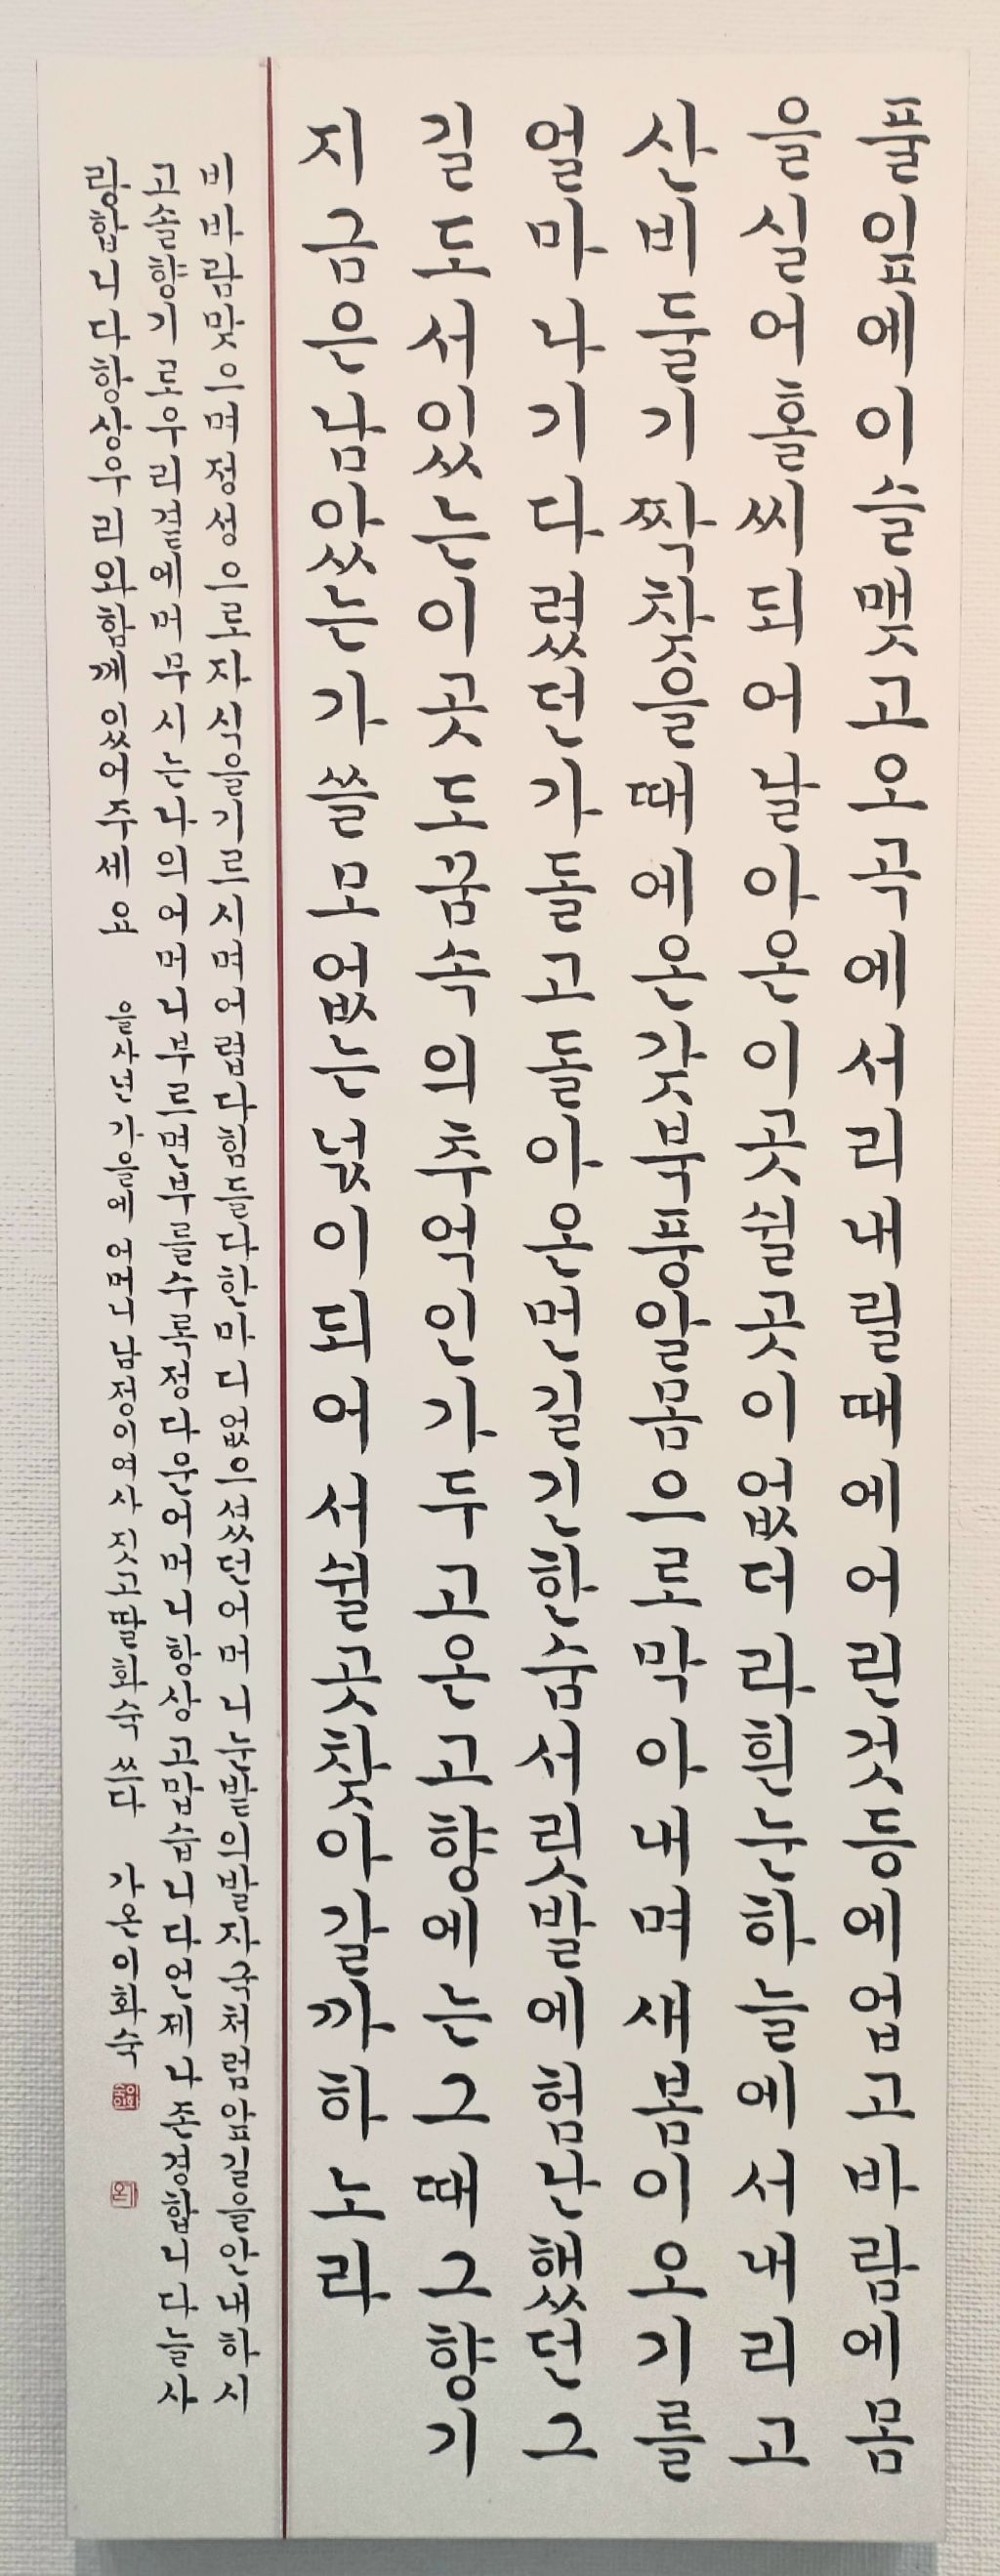 풀잎에이슬맺고오곡에서리내릴때에어린것등에업고바람에몸
을실어홀씨되어날아온이곳쉴곳이없더라흰눈하늘에서내리고
산비둘기짝찾을때에온갖북풍알몸으로막아내며새봄이오기를
얼마나기다렸던가돌고돌아온먼길긴한숨서릿발에험난했던그
길도서있는이곳도꿈속의추억인가두고온고향에는그때그향기
지금은남았는가쓸모없는넋이되어서쉴곳찾아갈까하노라
비바람맞으며정성으로자식을기르시며어렵다힘들다한마디없으셨던어머니눈밭의발자국처럼앞길을안내하시
고솔향기로우리곁에머무시는나의어머니부르면부를수록정다운어머니항상고맙습니다언제나존경합니다늘사
랑합니다항상우리와함께있어주세요 을사년가을에 어머니남정이여사 짓고딸화숙 쓰다 가온이화숙